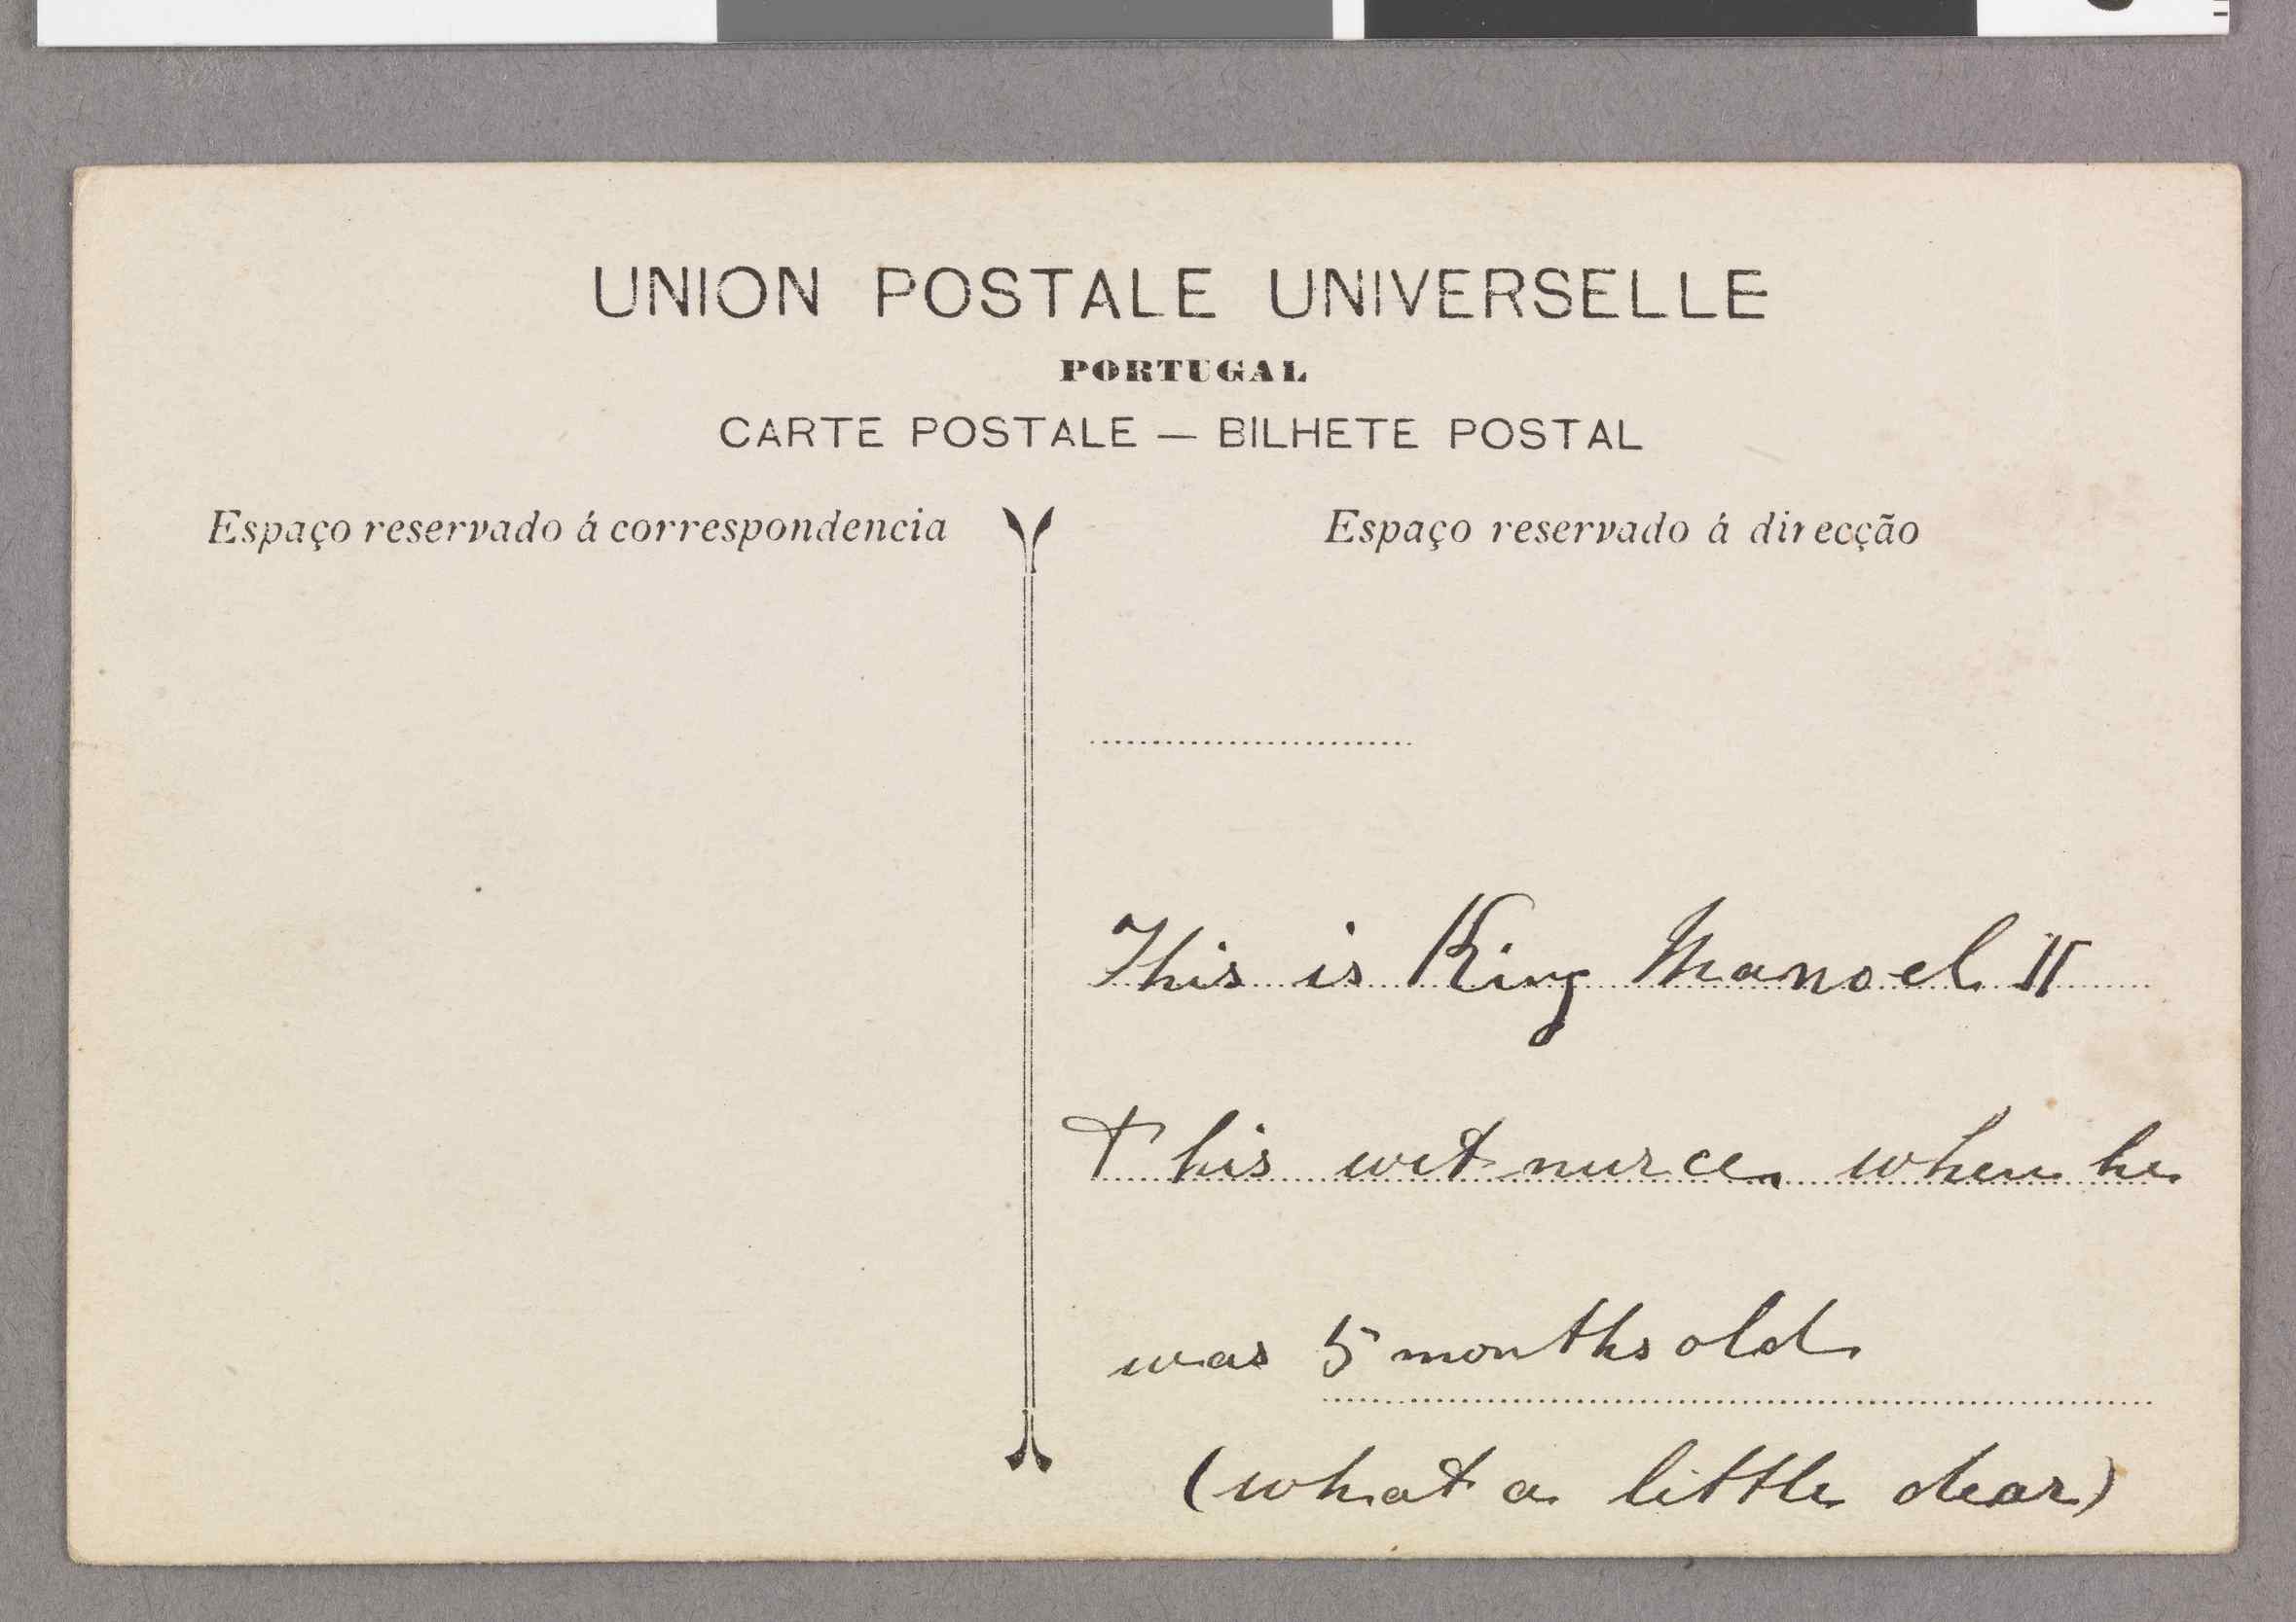 UNION POSTALE UNIVERSELLE
PORTUGAL
CARTE POSTALE — BILHETE POSTAL
Espaço reservado á correspondencia
Espaço reservado á direcção
This is King Manoel II
+ his wet nurce when he
was 5 months old
(what a little dear)